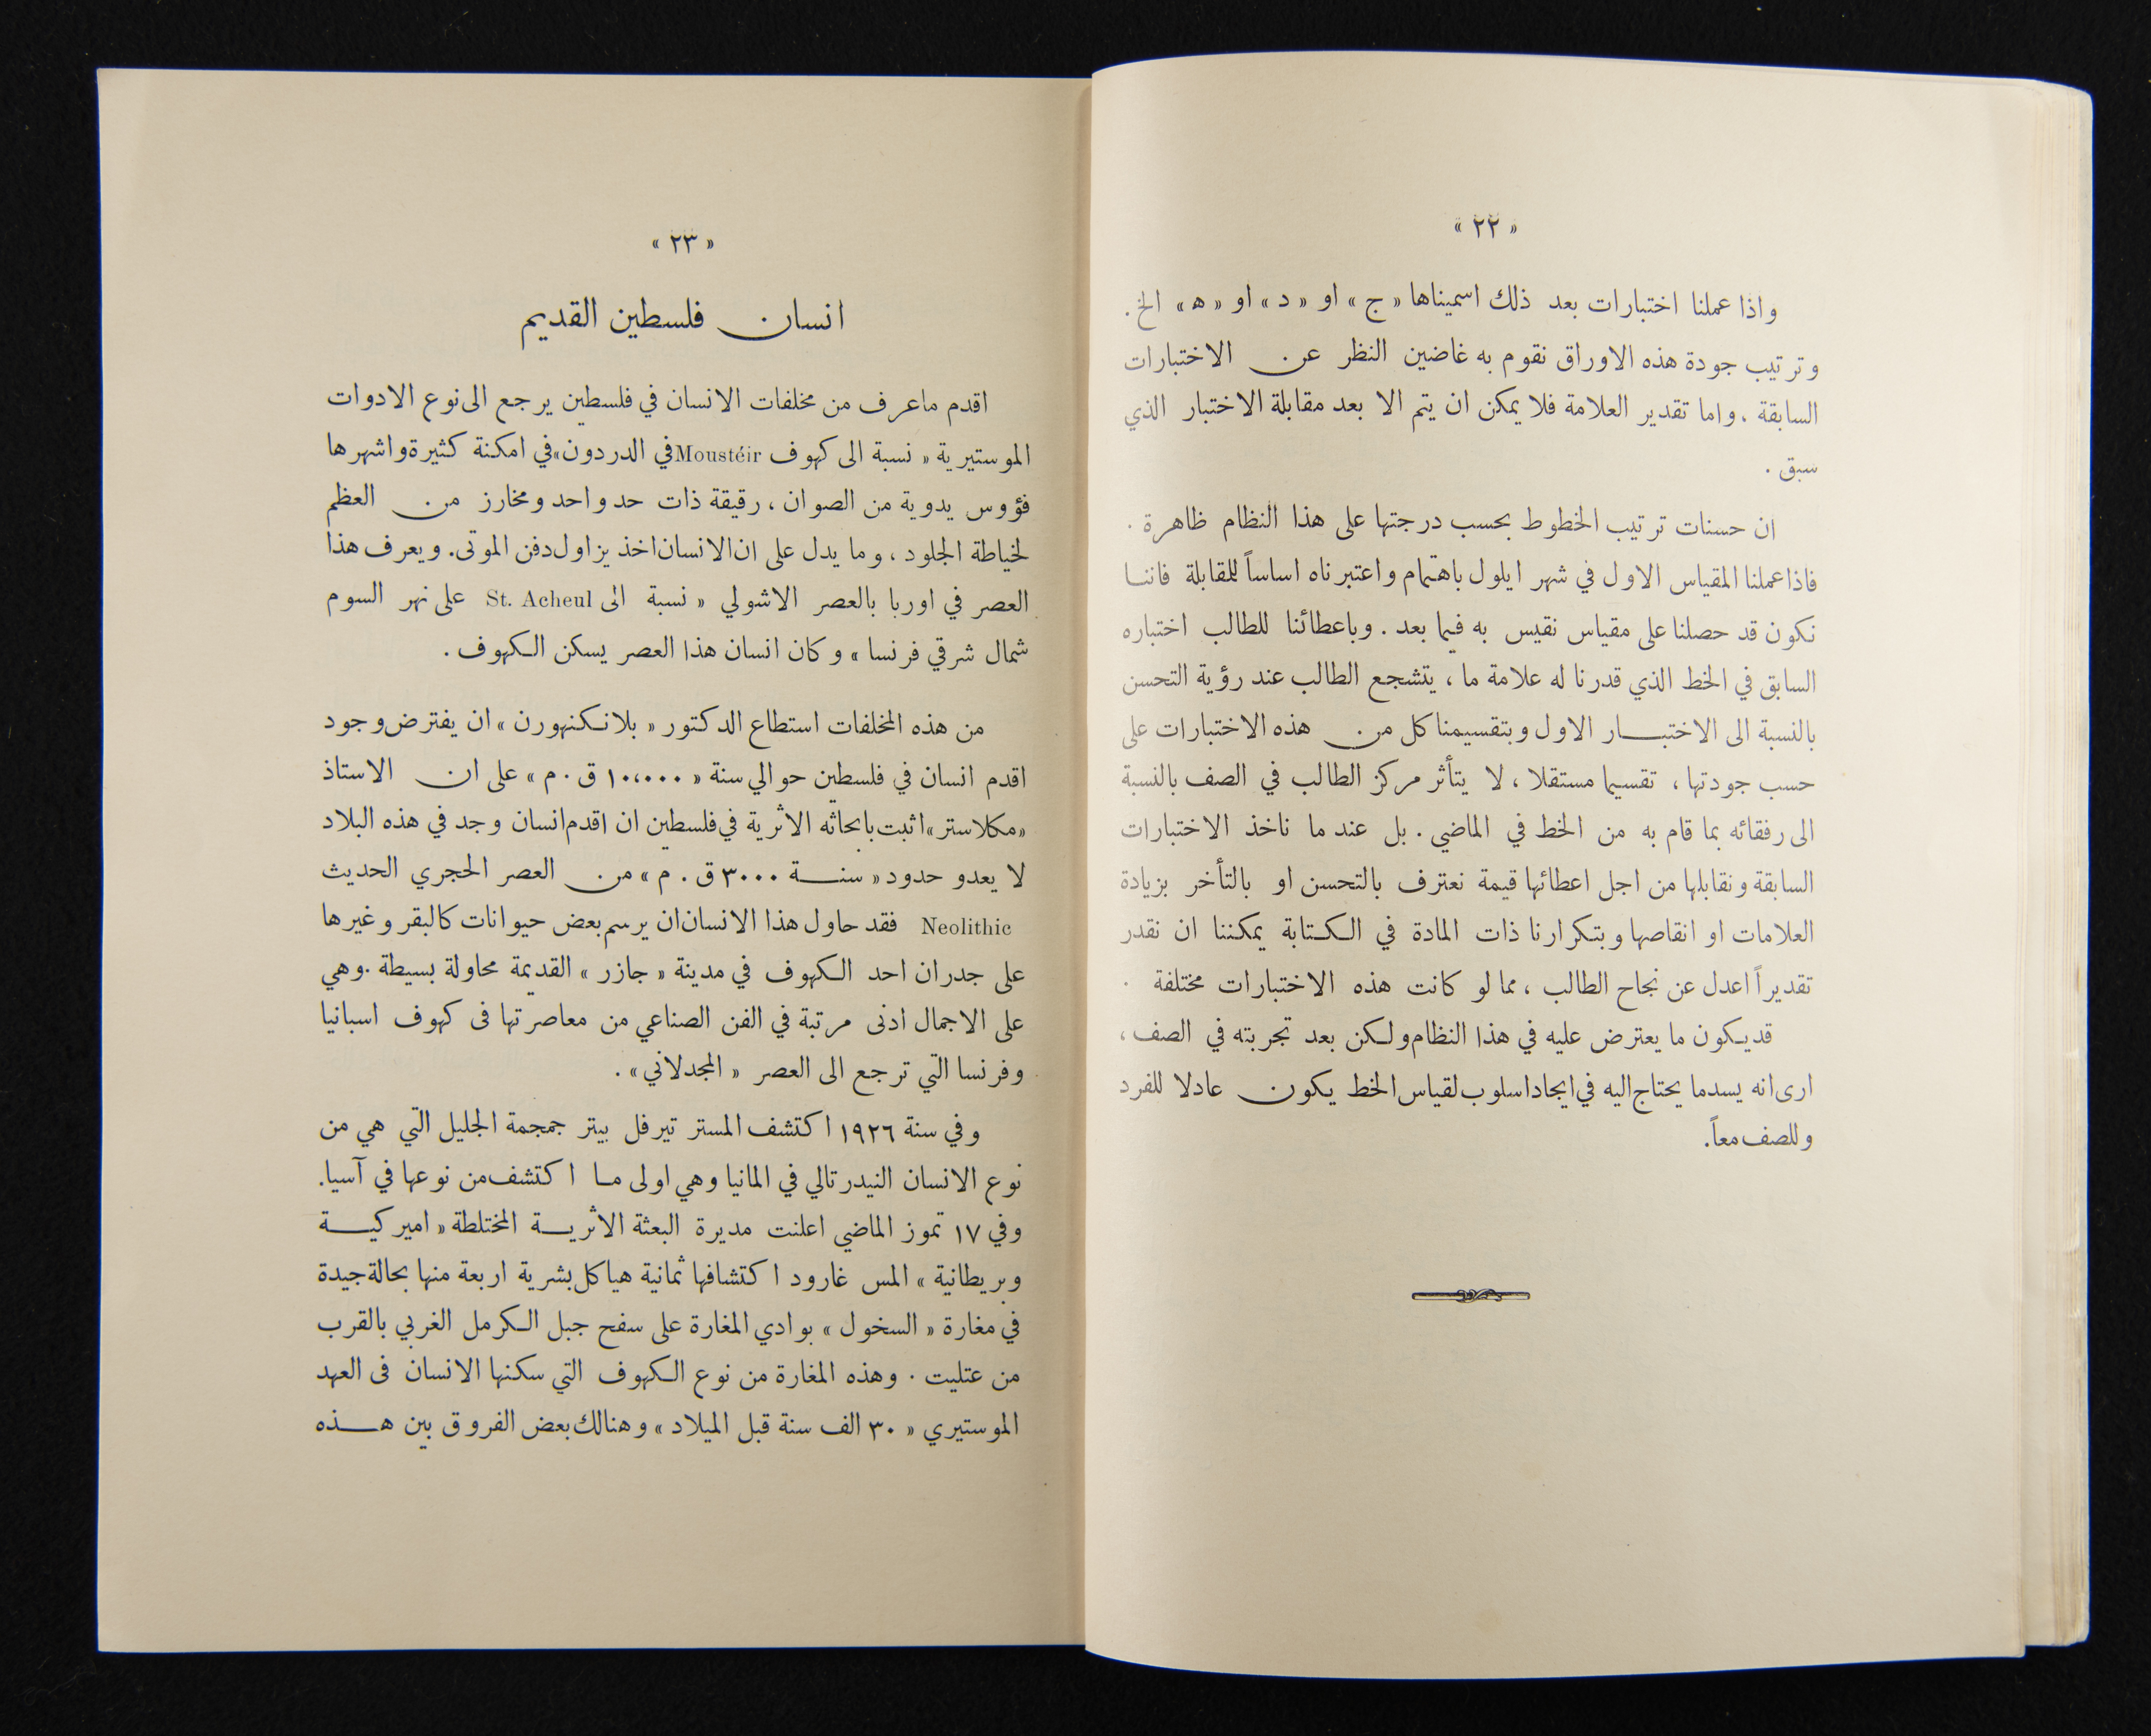 « ٢٢ »
واذا عملنا اختبارات بعد ذلك اسميناها « ج » او « د » او « ه » الخ .
وترتيب جودة هذه الاوراق نقوم به غاضين النظر عن الاختبارات
السابقة . واما تقدير العلامة فلا يمكن ان يتم الا بعد مقابلة الاختبار الذي
سبق .
ان حسنات ترتيب الخطوط بحسب درجتها على هذا النظام ظاهرة .
فاذا عملنا المقياس الاول في شهر ايلول باهتمام واعتبرناه اساساً للمقابلة فاننا
نكون قد حصلنا على مقياس نقيس به فيما بعد . وباعطائنا للطالب اختباره
السابق في الخط الذي قدرنا له علامة ما ، يتشجع الطالب عند رؤية التحسن
بالنسبة الى الاختبار الاول وبتقسيمنا كل من هذه الاختبارات على
حسب جودتها ، تقسيما مستقلا ، لا يتأثر مركز الطالب في الصف بالنسبة
الى رفقائه بما قام به من الخط في الماضي . بل عند ما ناخذ الاختبارات
السابقة ونقابلها من اجل اعطائها قيمة نعترف بالتحسن او بالتأخر بزيادة
العلامات او انقاصها وبتكرارنا ذات المادة في الكتابة يمكننا ان نقدر
تقديراً اعدل عن نجاح الطالب ، مما لو كانت هذه الاختبارات مختلفة .
قد يكون ما يعترض عليه في هذا النظام ولكن بعد تجربته في الصف ،
ارى انه يسد ما يحتاج اليه في ايجاد اسلوب لقياس الخط يكون عادلا للفرد
وللصف معاً .
« ٢٣ »
انسان فلسطين القديم
اقدم ما عرف من مخلفات الانسان في فلسطين يرجع الى نوع الادوات
الموستيرية « نسبة الى كهوف Moustéir في الدردون » في امكنة كثيرة واشهرها
فؤوس يدوية من الصوان ، رقيقة ذات حد واحد ومخارز من العظم
لخياطة الجلود ، وما يدل على ان الانسان اخذ يزاول دفن الموتى . ويعرف هذا
العصر في اوربا بالعصر الاشولي « نسبة الى St. Acheul على نهر السوم
شمال شرقي فرنسا » وكان انسان هذا العصر يسكن الكهوف .
من هذه المخلفات استطاع الدكتور « بلانكنهورن » ان يفترض وجود
اقدم انسان في فلسطين حوالي سنة « ١٠،٠٠٠ ق . م » على ان الاستاذ
« مكلاستر » اثبت بابحاثه الاثرية في فلسطين ان اقدم انسان وجد في هذه البلاد
لا يعدو حدود « سنة ٣٠٠٠ ق . م » من العصر الحجري الحديث
Neolithic فقد حاول هذا الانسان ان يرسم بعض حيوانات كالبقر وغيرها
على جدران احد الكهوف في مدينة « جازر » القديمة محاولة بسيطة . وهي
على الاجمال ادنى مرتبة في الفن الصناعي من معاصرتها فى كهوف اسبانيا
وفرنسا التي ترجع الى العصر « المجدلاني » .
وفي سنة ١٩٢٦ اكتشف المستر تيرفل بيتر جمجمة الجليل التي هي من
نوع الانسان النيدرتالي في المانيا وهي اولى ما اكتشف من نوعها في آسيا .
وفي ١٧ تموز الماضي اعلنت مديرة البعثة الاثرية المختلطة « اميركية
وبريطانية » المس غارود اكتشافها ثمانية هياكل بشرية اربعة منها بحالة جيدة
في مغارة « السخول » بوادي المغارة على سفح جبل الكرمل الغربي بالقرب
من عتليت . وهذه المغارة من نوع الكهوف التي سكنها الانسان فى العهد
الموستيري « ٣٠ الف سنة قبل الميلاد » وهنالك بعض الفروق بين هذه